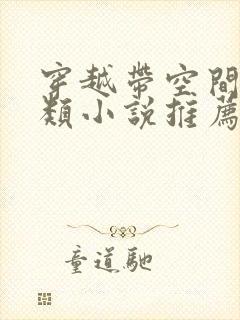 穿越帶空間
類小說推薦
童道馳